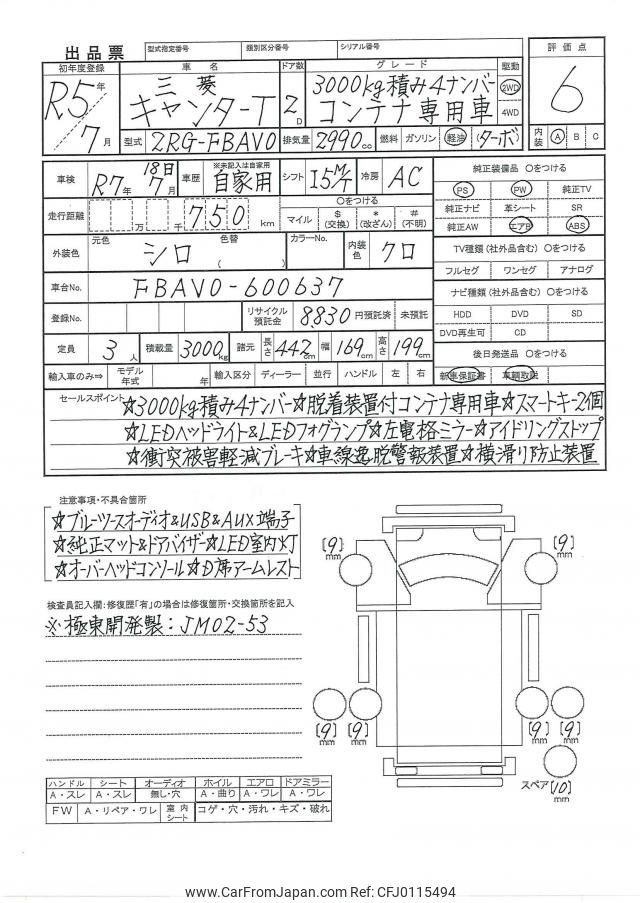 出品票 型式指定番号 類別区分番号 シリアル番号
初年度登録 車名 ドア数 グレード 駆動 評価点
R5年 三菱 3000kg積み4ナンバー 2WD 6
7月 キャンターT 2D コンテナ専用車 4WD
型式 2RG-FBAV0 排気量 2990cc 燃料 ガソリン 軽油 (ターボ) 内装 A B C
車検 R7年 18日 7月 車歴 ※未記入は自家用 自家用 シフト I5M/T 冷房 AC 純正装備品 ○をつける
PS PW 純正TV
走行距離 万 千 750 km ○をつける
マイル $(交換) *(改ざん) #(不明) 純正ナビ 革シート SR
純正AW エアB ABS
外装色 元色 シロ 色替 ( ) カラーNo. 内装色 クロ TV種類(社外品含む) ○をつける
フルセグ ワンセグ アナログ
車台No. FBAV0-600637 ナビ種類(社外品含む) ○をつける
登録No. リサイクル預託金 8830円預託済 未預託 HDD DVD SD
DVD再生可 CD
定員 3人 積載量 3000kg 諸元 長さ 442cm 幅 169cm 高さ 199cm 後日発送品 ○をつける
輸入車のみ⇒ モデル年式 年 輸入区分 ディーラー 並行 ハンドル 左 右 新車保証書 車輌取説
セールスポイント ☆3000kg積み4ナンバー☆脱着装置付コンテナ専用車☆スマートキー2個
☆LEDヘッドライト&LEDフォグランプ☆左電格ミラー☆アイドリングストップ
☆衝突被害軽減ブレーキ☆車線逸脱警報装置☆横滑り防止装置
注意事項・不具合箇所
☆ブルーツースオーディオ&USB&AUX端子
☆純正マット&ドアバイザー☆LED室内灯
☆オーバーヘッドコンソール☆D席アームレスト
検査員記入欄:修復歴「有」の場合は修復箇所・交換箇所を記入
※極東開発製:JM02-53
[9]mm [9]mm
[9]mm [9]mm [9]mm [9]mm
スペア[10]mm
ハンドル シート オーディオ ホイル エアロ ドアミラー
A・スレ A・スレ 無し・穴 A・曲り A・ワレ A・ワレ
FW A・リペア・ワレ 室内シート コゲ・穴・汚れ・キズ・破れ
www.CarFromJapan.com Ref: CFJ0115494